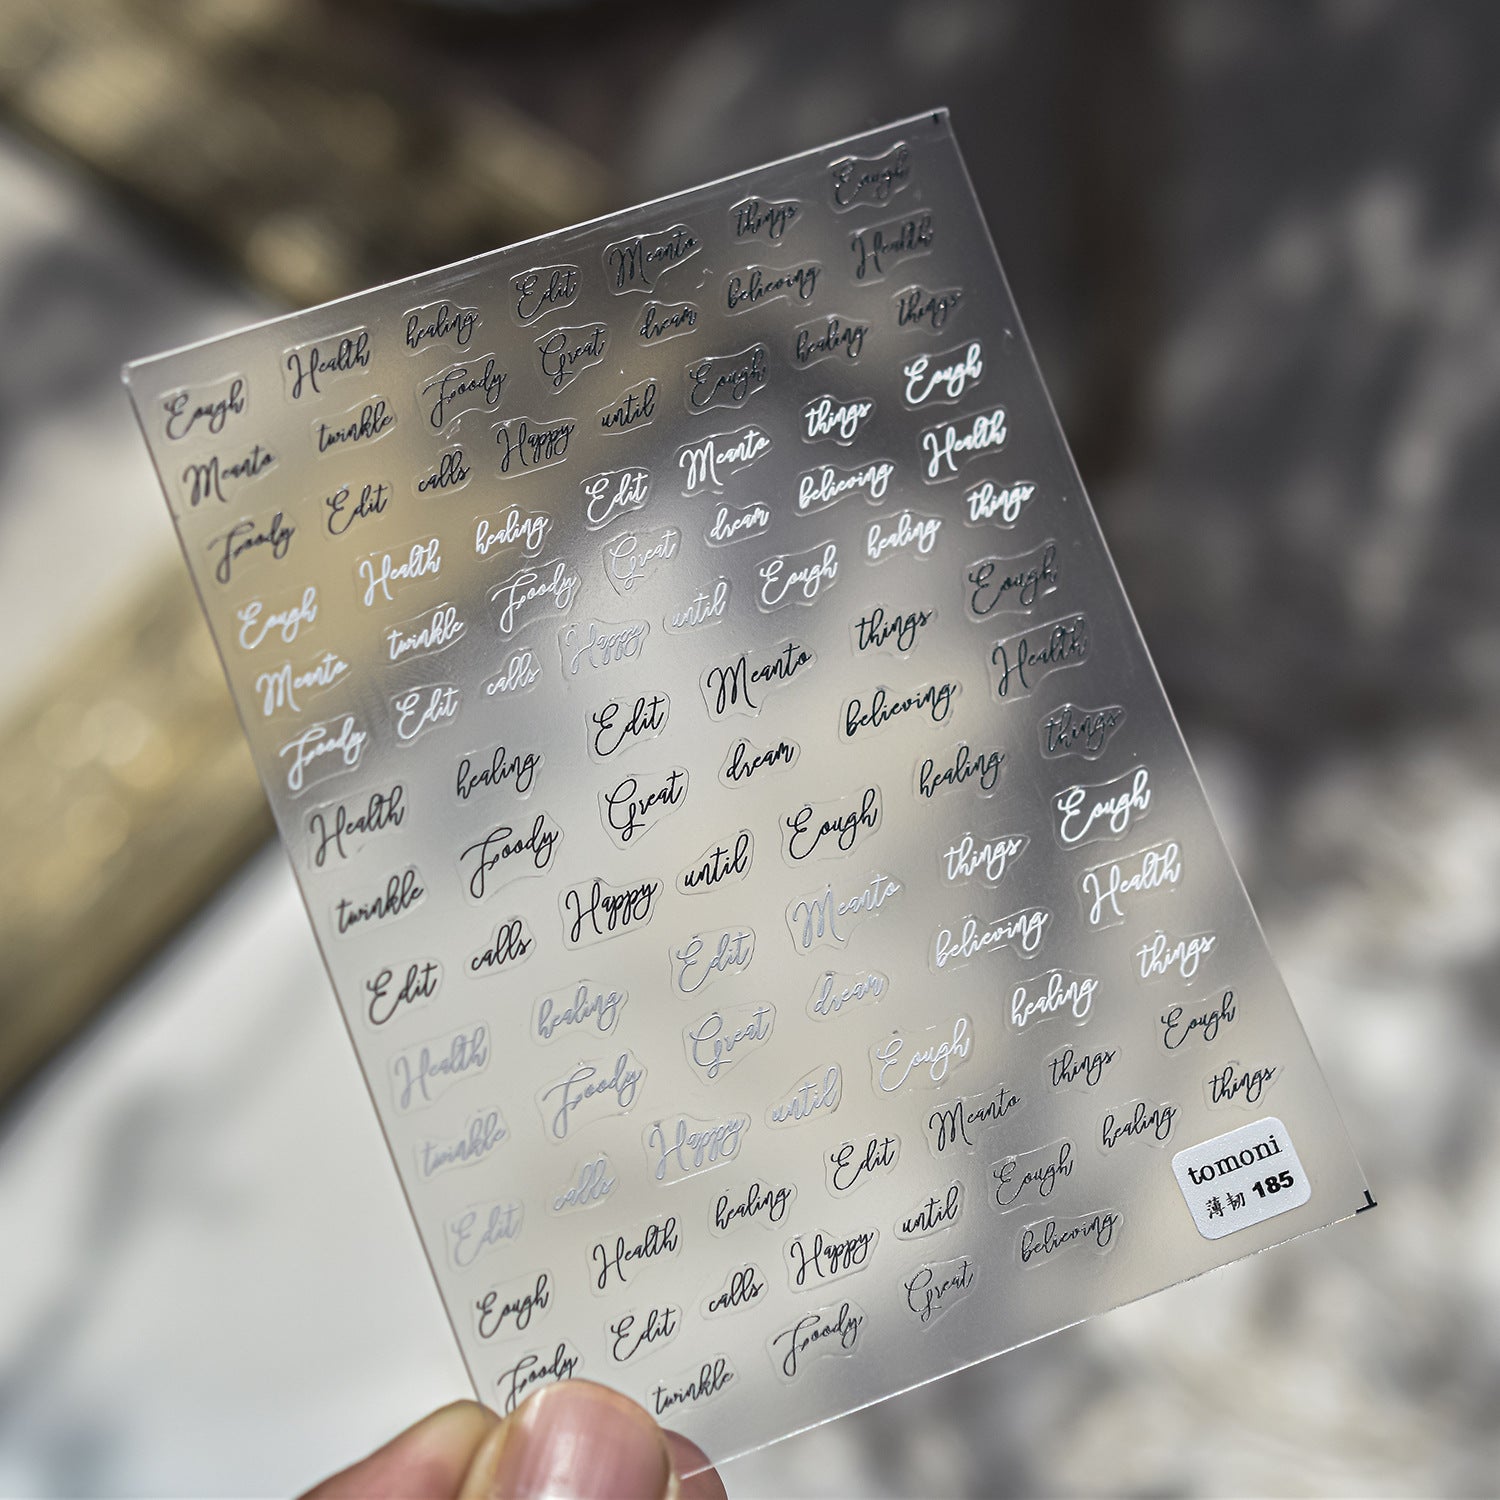 Eough Health healing Edit Meanto things Eough
Meanto twinkle Foody Great dream believing Health
Foody Edit calls Happy until Eough healing things
Eough Health healing Edit Meanto things Eough
Meanto twinkle Foody Great dream believing Health
Foody Edit calls Happy until Eough healing things
Health healing Edit Meanto things Eough
twinkle Foody Great dream believing Health
Edit calls Happy until Eough healing things
Health healing Edit Meanto things Eough
twinkle Foody Great dream believing Health
Edit calls Happy until Eough healing things
Eough Health healing Edit Meanto things Eough
Foody Edit calls Happy until Eough healing things
twinkle Foody Great believing
tomoni
薄韧 185